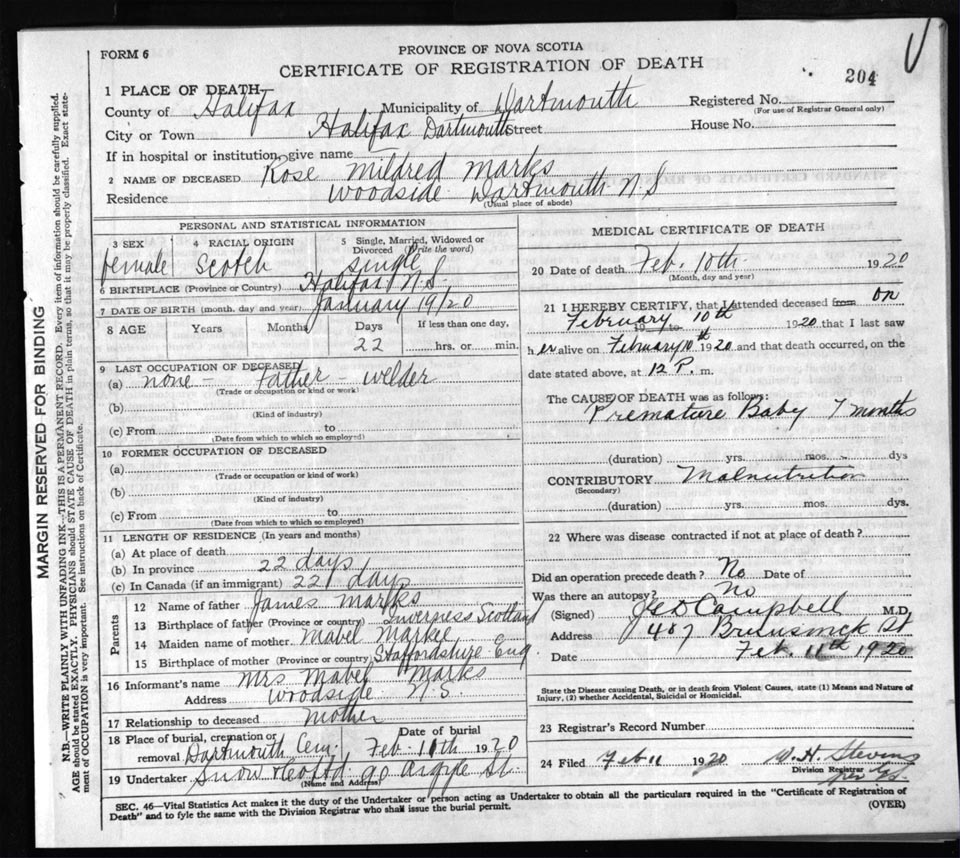 FORM 6
PROVINCE OF NOVA SCOTIA
CERTIFICATE OF REGISTRATION OF DEATH
204
1 PLACE OF DEATH—
County of Halifax Municipality of Dartmouth Registered No.
(For use of Registrar General only)
City or Town Halifax Dartmouth Street House No.
If in hospital or institution, give name
2 NAME OF DECEASED Rose Mildred Marks
Residence Woodside Dartmouth N.S
(Usual place of abode)
PERSONAL AND STATISTICAL INFORMATION
3 SEX 4 RACIAL ORIGIN 5 Single, Married, Widowed or Divorced (Write the word)
female Scotch Single
6 BIRTHPLACE (Province or Country) Halifax N.S.
7 DATE OF BIRTH (month, day and year) January 19/20
8 AGE Years Months Days If less than one day,
22 hrs. or min.
9 LAST OCCUPATION OF DECEASED
(a) none - Father - welder
(Trade or occupation or kind of work)
(b)
(Kind of industry)
(c) From to
(Date from which to which so employed)
10 FORMER OCCUPATION OF DECEASED
(a)
(Trade or occupation or kind of work)
(b)
(Kind of industry)
(c) From to
(Date from which to which so employed)
11 LENGTH OF RESIDENCE (In years and months)
(a) At place of death
(b) In province 22 days
(c) In Canada (if an immigrant) 22 days
Parents
12 Name of father James Marks
13 Birthplace of father (Province or country) Inverness Scotland
14 Maiden name of mother Mabel
15 Birthplace of mother (Province or country) Staffordshire Eng.
16 Informant's name Mrs Mabel Marks
Address Woodside N.S.
17 Relationship to deceased Mother
18 Place of burial, cremation or removal Dartmouth Cem. Date of burial Feb. 11th 1920
19 Undertaker Snow & Co Ltd 90 Argyle St.
(Name and Address)
MEDICAL CERTIFICATE OF DEATH
20 Date of death Feb. 10th 1920
(Month, day and year)
21 I HEREBY CERTIFY, that I attended deceased from on
February 10th 19 to 1920 that I last saw
her alive on February 10th 1920 and that death occurred, on the
date stated above, at 12 P. m.
The CAUSE OF DEATH was as follows:
Premature Baby 7 months
(duration) yrs. mos. dys
CONTRIBUTORY Malnutrition
(Secondary)
(duration) yrs. mos. dys.
22 Where was disease contracted if not at place of death?
Did an operation precede death? No Date of
Was there an autopsy? No
(Signed) Campbell M.D.
Address 407 Brunswick St
Date Feb. 11th 1920
State the Disease causing Death, or in death from Violent, Causes, state (1) Means and Nature of Injury, (2) whether Accidental, Suicidal or Homicidal.
23 Registrar's Record Number
24 Filed Feb 11 1920 W.H. Stevens
Division Registrar
SEC. 46—Vital Statistics Act makes it the duty of the Undertaker or person acting as Undertaker to obtain all the particulars required in the "Certificate of Registration of
Death" and to fyle the same with the Division Registrar who shall issue the burial permit.
(OVER)
MARGIN RESERVED FOR BINDING
N.B.—WRITE PLAINLY WITH UNFADING INK—THIS IS A PERMANENT RECORD. Every item of information should be carefully supplied.
AGE should be stated EXACTLY. PHYSICIANS should STATE CAUSE OF DEATH in plain terms, so that it may be properly classified. Exact statement of OCCUPATION is very important. See instructions on back of Certificate.